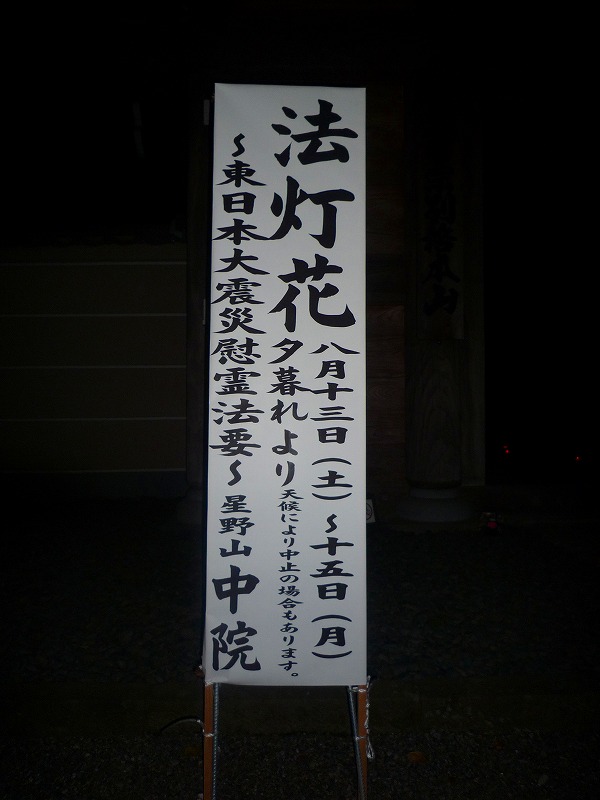 法灯花
八月十三日（土）～十五日（月）
夕暮れより
天候により中止の場合もあります。
～東日本大震災慰霊法要～
星野山中院